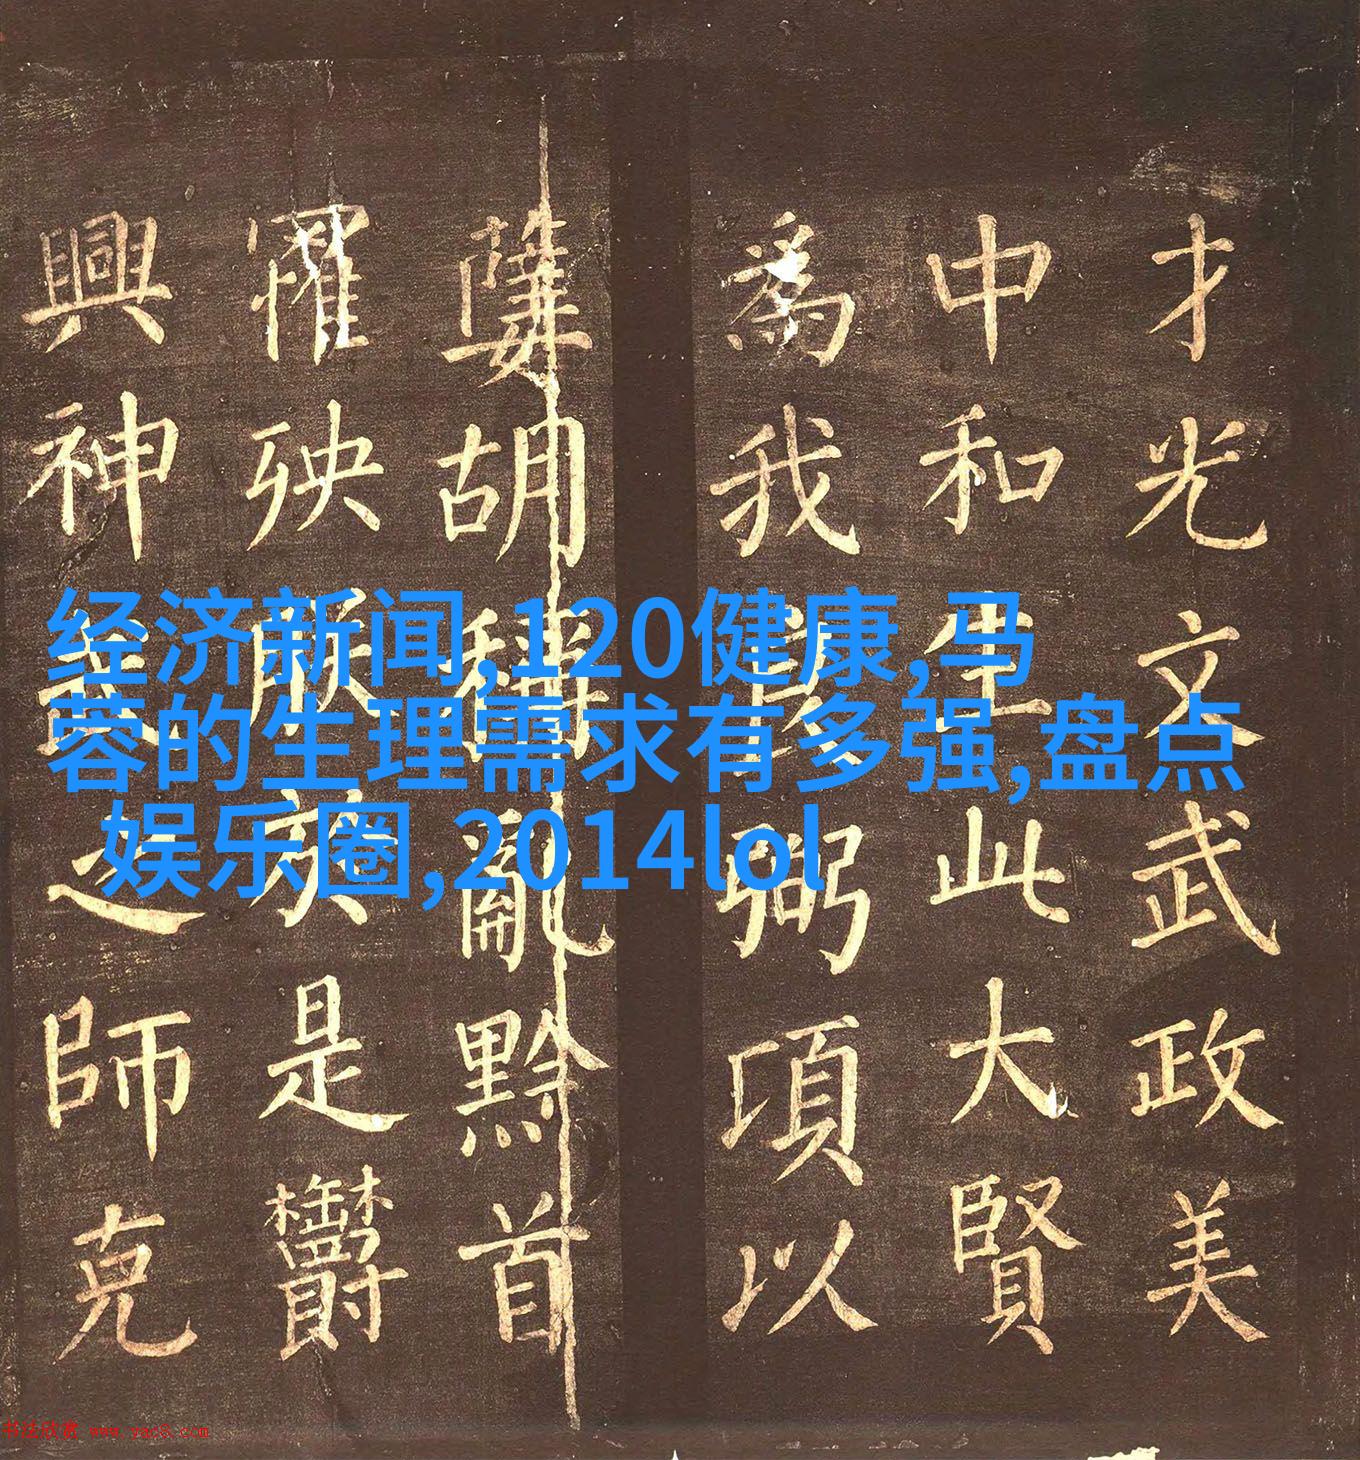 才光文武政美
中和生此大賢
為我弼項以
胡稱亂黔首
罹殃是欝
興神之師克
经济新闻,120健康,马
蓉的生理需求有多强,盘点
娱乐圈,2014lol
书法欣赏 www.yac8.com